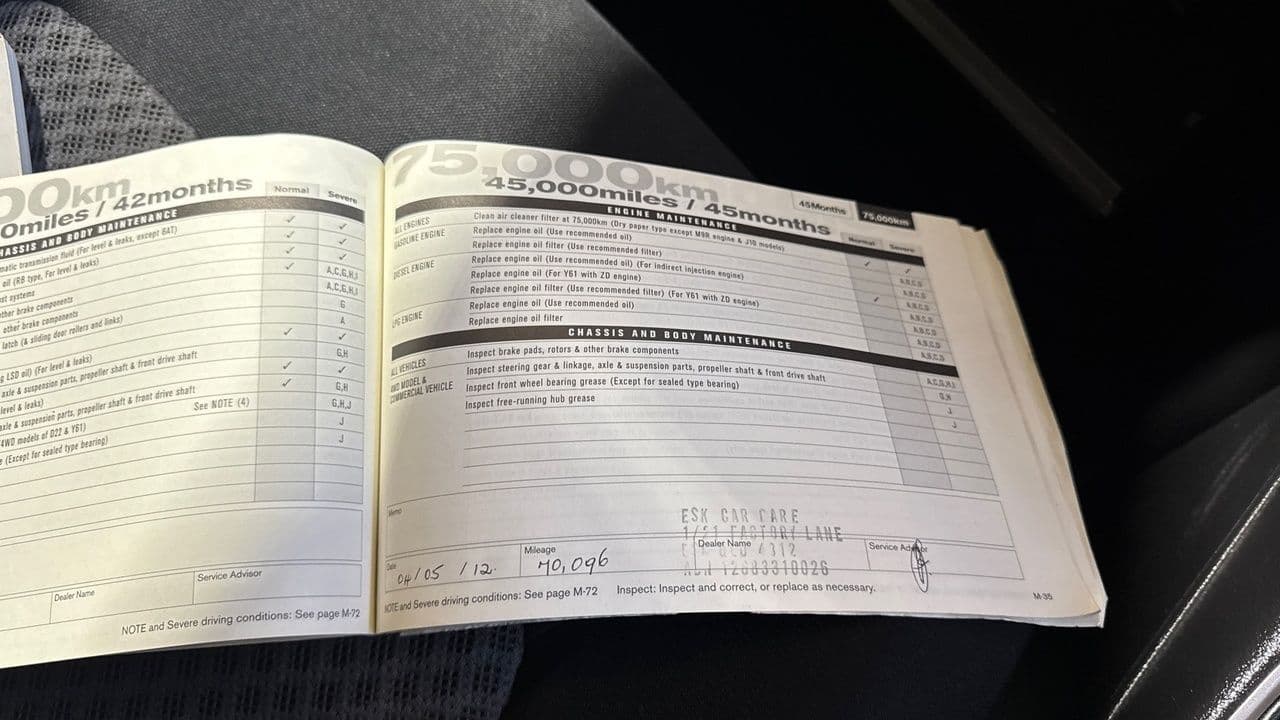 00km
0miles / 42months
Normal
Severe
CHASSIS AND BODY MAINTENANCE
matic transmission fluid (For level & leaks, except 8AT)
oil (RB type, For level & leaks)
st systems
other brake components
other brake components
latch (& sliding door rollers and links)
g LSD oil) (For level & leaks)
axle & suspension parts, propeller shaft & front drive shaft
level & leaks)
axle & suspension parts, propeller shaft & front drive shaft
4WD models of D22 & Y61) See NOTE (4)
e (Except for sealed type bearing)
✓
✓ ✓
✓ ✓
✓ ✓
A,C,G,H,I
A,C,G,H,I
G
A
✓ ✓
G,H
✓ ✓
✓ G,H
G,H,J
J
J
Dealer Name
Service Advisor
NOTE and Severe driving conditions: See page M-72
75,000km
45,000miles / 45months
45Months
75,000km
ENGINE MAINTENANCE
Normal
Severe
ALL ENGINES
Clean air cleaner filter at 75,000km (Dry paper type except M9R engine & J10 models)
GASOLINE ENGINE
Replace engine oil (Use recommended oil)
Replace engine oil filter (Use recommended filter)
DIESEL ENGINE
Replace engine oil (Use recommended oil) (For indirect injection engine)
Replace engine oil (For Y61 with ZD engine)
Replace engine oil filter (Use recommended filter) (For Y61 with ZD engine)
LPG ENGINE
Replace engine oil (Use recommended oil)
Replace engine oil filter
✓ ✓
A,B,C,D
A,B,C,D
A,B,C,D
✓ A,B,C,D
A,B,C,D
A,B,C,D
A,B,C,D
CHASSIS AND BODY MAINTENANCE
ALL VEHICLES
Inspect brake pads, rotors & other brake components
A,C,G,H,I
Inspect steering gear & linkage, axle & suspension parts, propeller shaft & front drive shaft
G,H
4WD MODEL & COMMERCIAL VEHICLE
Inspect front wheel bearing grease (Except for sealed type bearing)
J
Inspect free-running hub grease
J
Memo
ESK CAR CARE
1/21 FACTORY LANE
4312
ABN 12683310026
Date
04/05/12.
Mileage
70,096
Dealer Name
Service Advisor
NOTE and Severe driving conditions: See page M-72
Inspect: Inspect and correct, or replace as necessary.
M-35